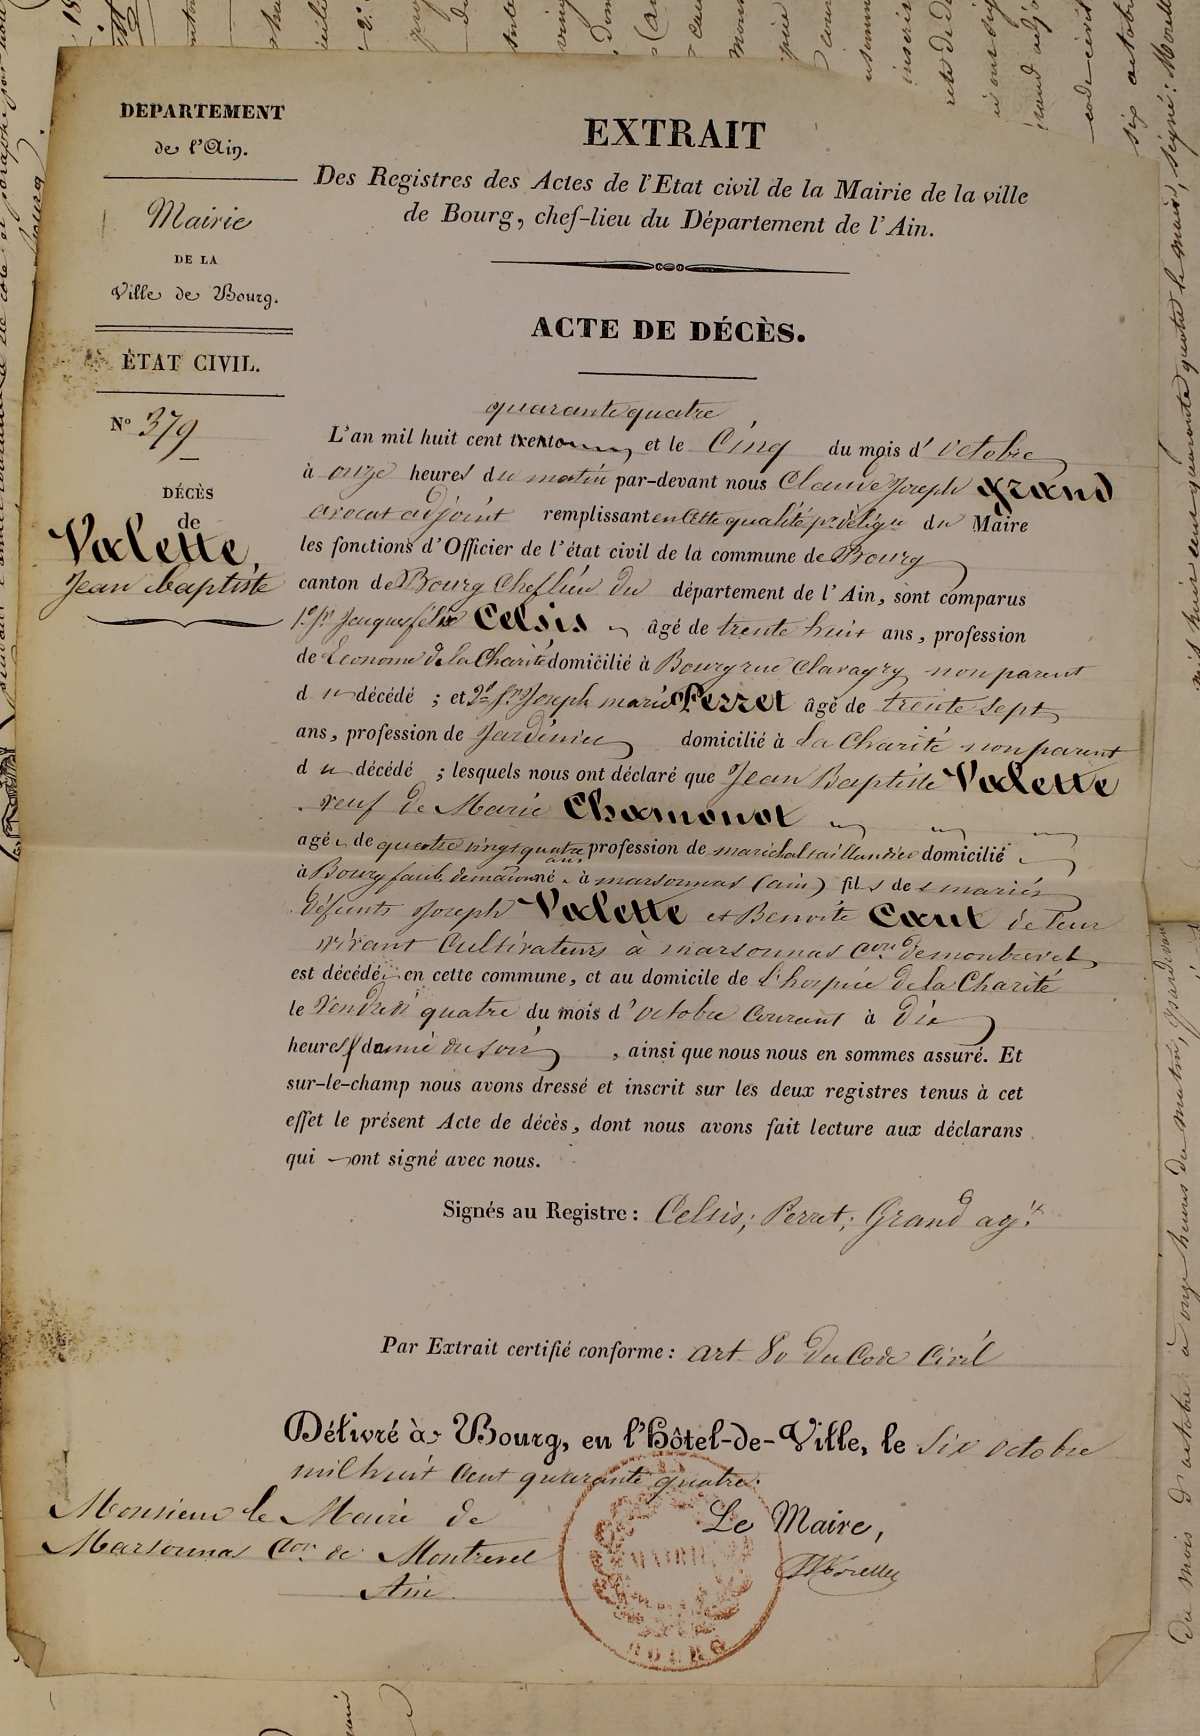 DEPARTEMENT
de l'Ain.
Mairie
DE LA
Ville de Bourg.
ÉTAT CIVIL.
N° 379
DÉCÈS
de
Valette,
Jean Baptiste
EXTRAIT
Des Registres des Actes de l'Etat civil de la Mairie de la ville
de Bourg, chef-lieu du Département de l'Ain.
ACTE DE DÉCÈS.
quarante quatre
L'an mil huit cent et le Cinq du mois d'octobre
à onze heures du matin par-devant nous Claude Joseph Grand
avocat adjoint remplissant en cette qualité du Maire
les fonctions d'Officier de l'état civil de la commune de Bourg
canton de Bourg Cheflieu du département de l'Ain, sont comparus
1° Sr Jacques felix Celsis âgé de trente huit ans, profession
de Econome de la Charité domicilié à Bourg rue Clavagry non parent
du décédé ; et 2° Sr Joseph marie Perret âgé de trente sept
ans, profession de Jardinier domicilié à la Charité non parent
du décédé ; lesquels nous ont déclaré que Jean Baptiste Valette
veuf de Marie Chamonot
agé de quatre vingt quatre ans profession de maréchal taillandier domicilié
à Bourg faub. de macon né à marsonnas (ain) fils de mariés
défunts Joseph Valette et Benoite Cœut de leur
vivant Cultivateurs à marsonnas Con de montrevel
est décédé en cette commune, et au domicile de L'hospice de la Charité
le Vendredi quatre du mois d'octobre Courant à dix
heures demie du soir , ainsi que nous nous en sommes assuré. Et
sur-le-champ nous avons dressé et inscrit sur les deux registres tenus à cet
effet le présent Acte de décès, dont nous avons fait lecture aux déclarans
qui ont signé avec nous.
Signés au Registre : Celsis; Perret; Grand agt.
Par Extrait certifié conforme : art 80 du Code Civil
Délivré à Bourg, en l'Hôtel-de-Ville, le Six octobre
mil huit Cent quarante quatre.
Le Maire,
Monsieur le Maire de
Marsonnas Con de Montrevel
Ain
MAIRIE
BOURG